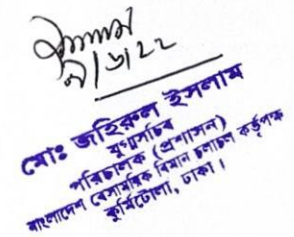 ৯/৬/২২
মোঃ জহিরুল ইসলাম
যুগ্মসচিব
পরিচালক (প্রশাসন)
বাংলাদেশ বেসামরিক বিমান চলাচল কর্তৃপক্ষ
কুর্মিটোলা, ঢাকা।